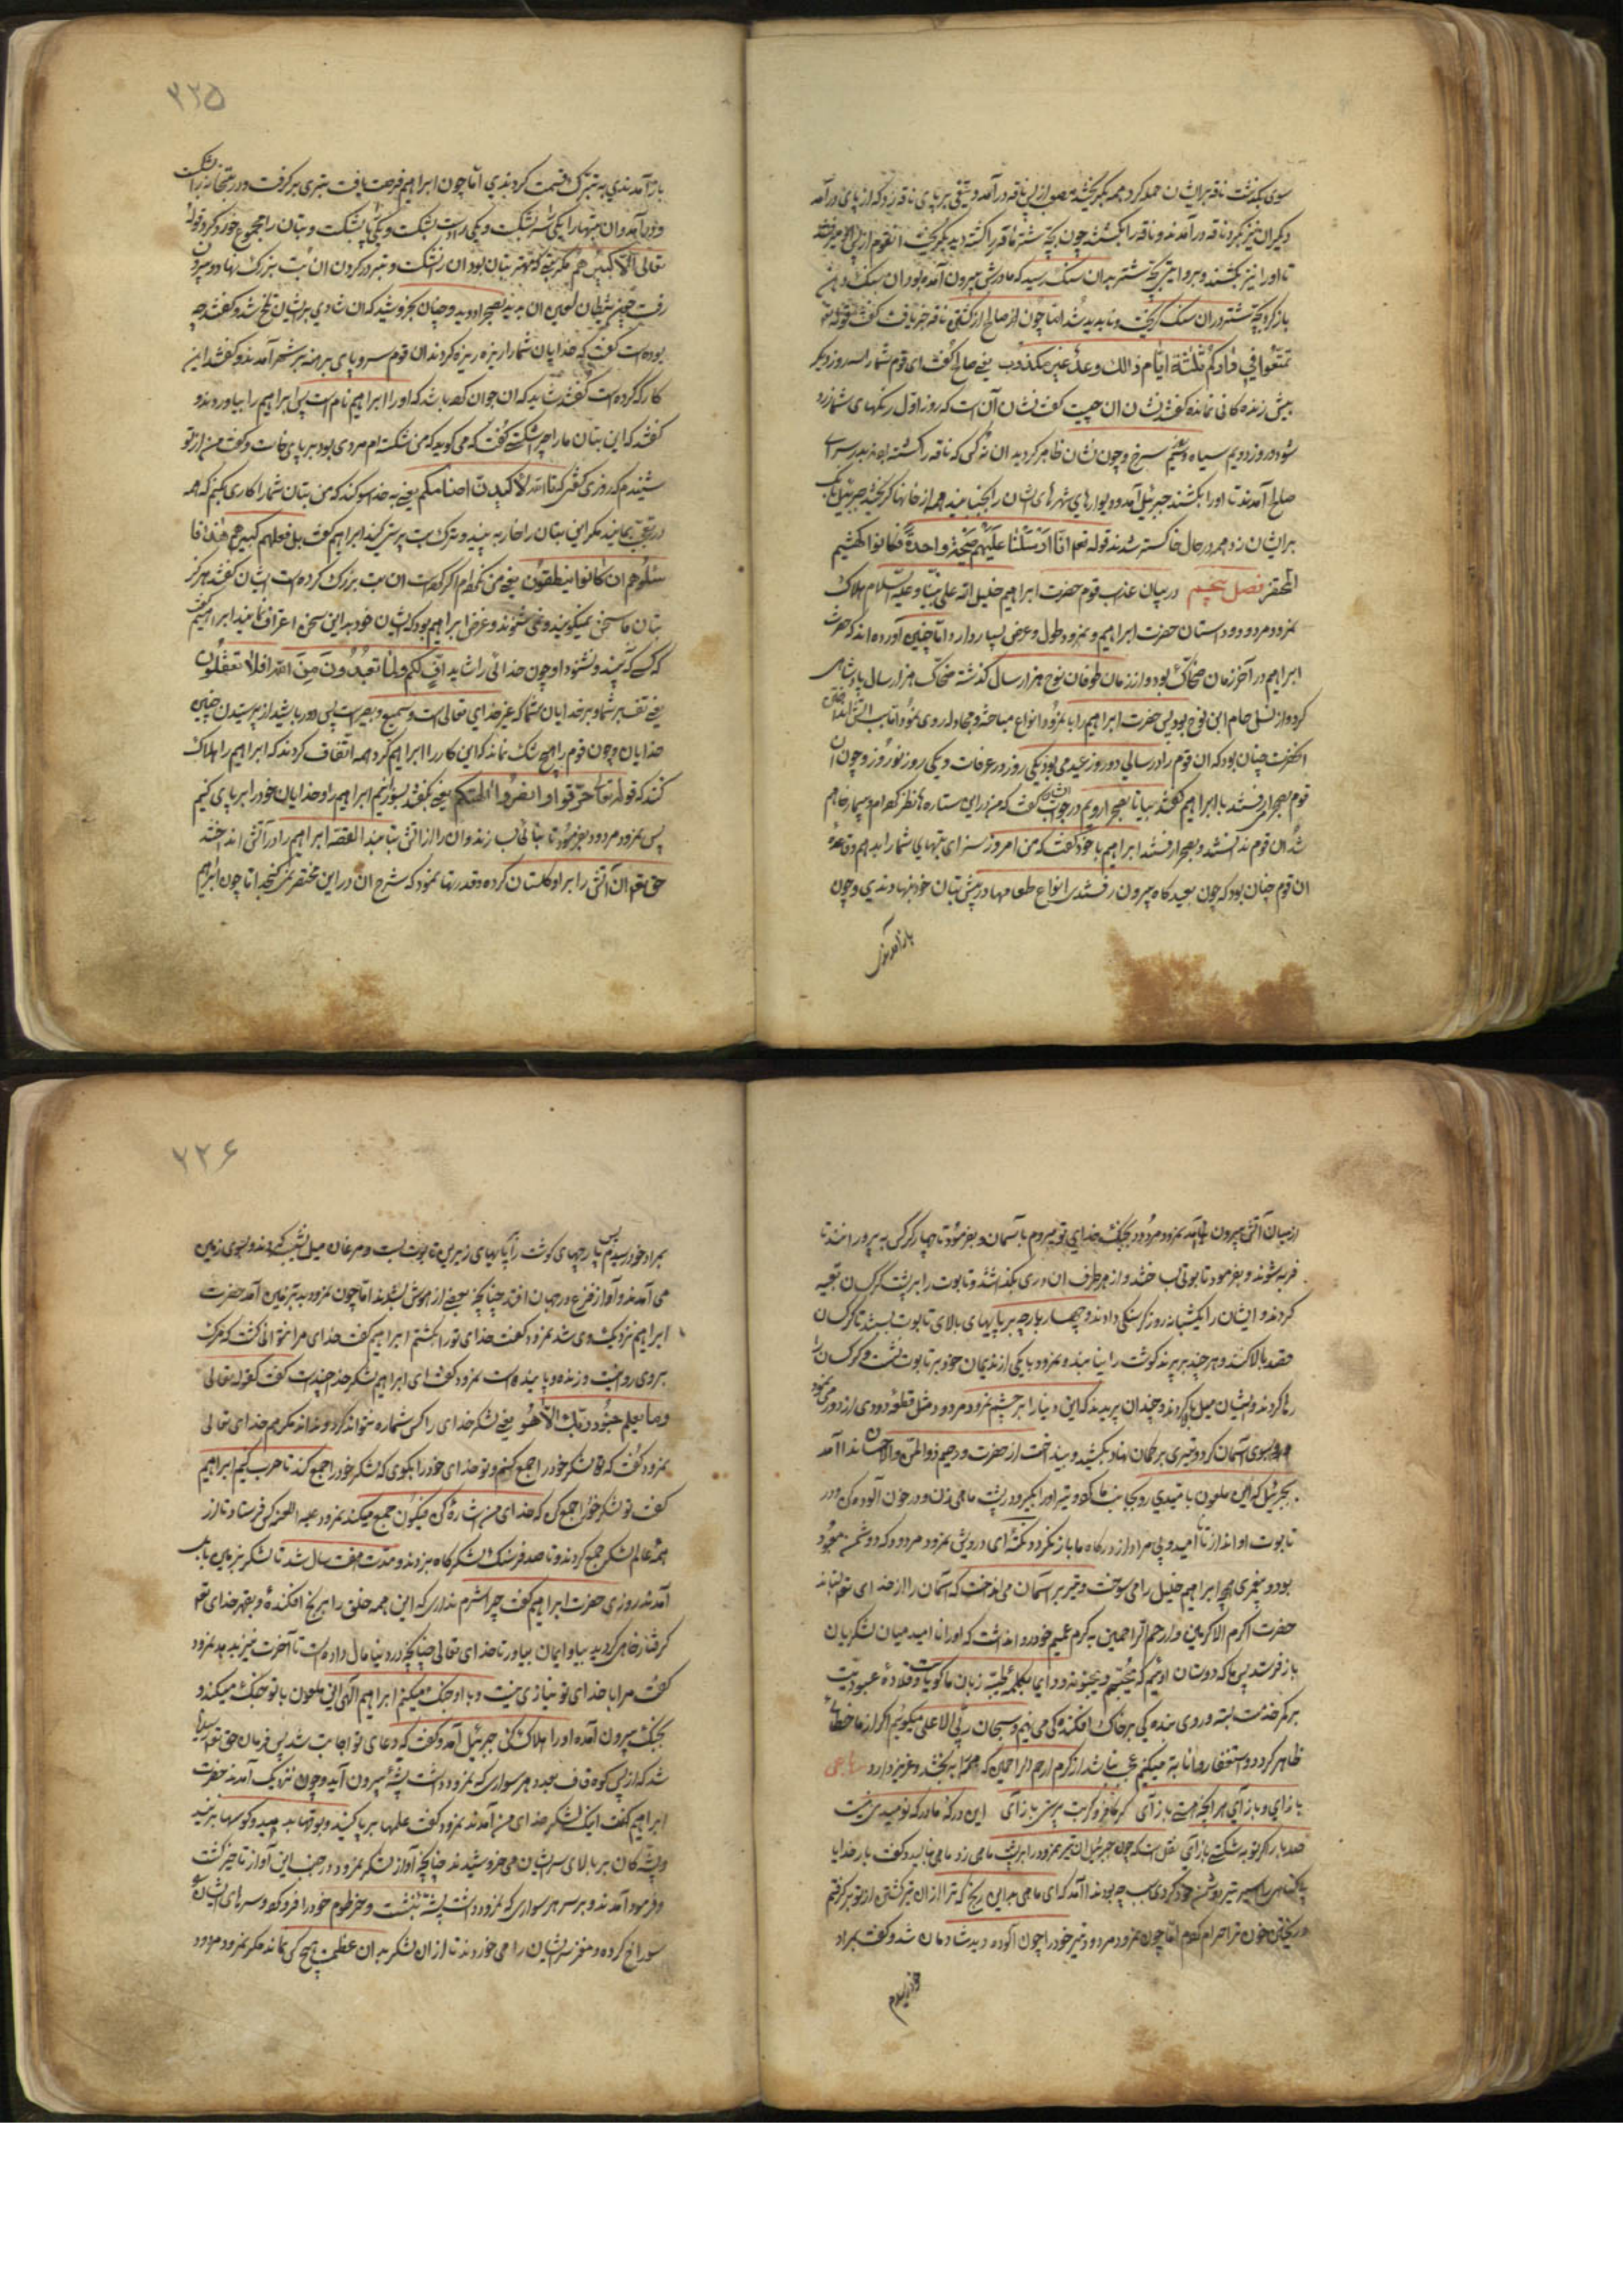 سوی یکذشت ناقه برایشان حمله کرد همه بگریختند مصعب از پی ناقه درآمد و تیغی بر پای ناقه زد که از پای درآمد
دیگران نیز بگرد ناقه درآمدند و ناقه را بکشتند چون بچهٔ شتر ناقه را کشته دید بگریخت آن قوم از پی او میرفتند
تا او را نیز بکشند و بروایتی بچهٔ شتر بدان سنک رسید که مادرش بیرون آمده بود آن سنک دهن
باز کرد بچهٔ شتر در آن سنک گریخت و ناپدید شد اما چون صالح از کشتن ناقه خبر یافت گفت قوله تع
تمتّعوا فی دارکم ثلثة ایّام ذالك وعد غیر مکذوب یعنی صالح گفت ای قوم شما را سه روز دیگر
بیش زنده کانی نمانده گفتند نشان آن چیست گفت نشان آن است که روز اوّل رنکهای شما زرد
شود و روز دویم سیاه و سیّم سرخ و چون نشان ظاهر کردید آن نه کس که ناقه را کشته بودند بدر سرای
صالح آمدند تا او را بکشند جبرئیل آمد و دیوارهای شهرهای ایشان را بجنبانید همه از خانها گریختند جبرئیل بانک
برایشان زد همه در حال خاکستر شدند قوله تعم انّا ارسلنا علیهم صیحة واحدة فکانوا کهشیم
المحتظر فصل پنجم در بیان عذاب قوم حضرت ابراهیم خلیل الله علی نبیّنا و علیه السّلام و هلاک
نمرود مردود و داستان حضرت ابراهیم و نمرود طول و عرض بسیار دارد امّا چنین آورده اند که حضرت
ابراهیم در آخر زمان ضحّاک بود و از زمان طوفان نوح هزار سال گذشته ضحّاک هزار سال پادشاهی
کرد و از نسل حام ابن نوح بود پس حضرت ابراهیم را با نمرود انواع مباحثه و مجادله روی نمود
آنحضرت چنان بود که آن قوم را در سالی دو روز عید می بود یکی روز در عرفات و یکی روز نوروز و چون آن
قوم بصحرا رفتند با ابراهیم گفتند بیا تا بصحرا رویم در جواب گفت که من در این ستاره ها نظر کرده ام و بیمار خواهم
شد آن قوم ندانستند و بصحرا رفتند ابراهیم با خود گفت که من امروز سزای بتهای شما را بدهم و قاعدهٔ
آن قوم چنان بود که چون بعید کاه بیرون رفتندی انواع طعامها در پیش بتان خود بنهادندی و چون
باز آمدندی
۲۲۵
باز آمدندی به تبرّک قسمت کردندی امّا چون ابراهیم فرصت یافت تبری برگرفت و در بتخانه را شکست
و درآمد و آن بتها را یکی سر بشکست و یکی را دست بشکست و یکی پا بشکست و بتان را مجموع خورد کرد قوله
تعالی الّا کبیراً لهم مکر بتی که مهتر بتان بود آن را نشکست و تبر در گردن آن بت بزرک نهاد و بیرون
رفت چون شیطان لعین آن بدید بصحرا دوید و چنان بخروشید که آن شادی برایشان تلخ شد و گفتند چه
بوده است گفت که خدایان شما را ریزه ریزه کردند آن قوم سر و پای برهنه بشهر آمدند و گفتند این
کار که کرده است گفتند شاید که آن جوان کرده باشد که او را ابراهیم نام است پس ابراهیم را بیاوردند و
گفتند که این بتان ما را چرا شکستی گفت که می کوید که من شکسته ام مردی بود بر پای خاست و گفت من از تو
شنیدم که روزی گفتی که تا الله لأکیدنّ اصنامکم یعنی به خدا سوکند که من بتان شما را کاری بکنم که همه
در تعجّب بمانید مکر این بتان را خار ببینید و ترک بت پرستی کنید ابراهیم گفت بل فعلهم کبیرهم هذا فا
سئلوهم ان کانوا ینطقون یعنی من نکرده ام اگر کرده است آن بت بزرک کرده است ایشان گفتند هرگز
بتان ما سخن نمیگویند و نمی شنوند و غرض ابراهیم بود که ایشان خود بدین سخن اعتراف نمایند ابراهیم گفت
کسی که نبیند و نشنود او چون خدائی را شاید افٍّ لکم ولما تعبدون من دون الله افلا تعقلون
یعنی تف بر شما و بر خدایان شما که غیر خدای تعالی است و سمیع و بصیر است پس دور باشید از پرستیدن چنین
خدایان و چون قوم را هیچ شک نماند که این کار را ابراهیم کرد همه اتّفاق کردند که ابراهیم را هلاک
کنند که قوله تعالی حرّقوه وانصروا آلهتکم یعنی گفتند بسوزانیم ابراهیم را و خدایان خود را بر پای کنیم
پس نمرود مردود بفرمود تا بنائی بساختند و آن را از آتش بتابیدند القصّه ابراهیم را در آتش انداختند
حق تعم آن آتش را بر او گلستان کرده و قدرتها نمود که شرح آن در این مختصر نمی گنجد امّا چون ابراهیم
از میان آتش بیرون آمد نمرود مردود گفت بجنگ خدای تو میروم بآسمان و بفرمود تا چهار کرکس به پرورانند تا
فربه شوند و بفرمود تا تابوتی ساختند و از هر طرف آن دری بگذاشتند و تابوت را بر پشت کرکسان تعبیه
کردند و ایشان را یکشبانه روز گرسنگی دادند و چهار پارچه بر پایهای بالای تابوت ببستند تا کرکسان
قصد بالا کنند و هر چند بر پرند گوشت را نیابند و نمرود با یکی از ندیمان خود بر تابوت نشست و کرکسان را
رها کردند و ایشان میل بالا کردند و چندان پریدند که این دنیا را بر چشم نمرود مردود مثل قطعه دودی از دور می نمود
پس بسوی آسمان کرد و تیری بر کمان نهاد و بکشید و بینداخت از حضرت رحیم ذوالمنّ والاحسان ندا آمد
بجبرئیل که این ملعون با تیری رو بجانب ما کرد و تیر او را بگیر و در پشت ماهی زن و در خون آلوده کن و در
تابوت او انداز تا نا امید و بی مراد از درکاه ما باز نگردد نکتهٔ ای درویش نمرود مردود که دشمن معبود
بود و پیغمبری همچو ابراهیم خلیل را می سوخت و تیر بر آسمان می انداخت که آسمان را از خدای تعم بستاند
حضرت اکرم الاکرمین و ارحم الرّاحمین به کرم عمیم خود روا نداشت که او را نا امید میان لشکریان
باز فرستد پس ما که دوستان اوئیم که یحبّهم و یحبّونه و دایم بکلمهٔ طیّبه زبان ما گویاست و قلادهٔ عبودیّت
بر کمر خدمت بسته و روی بنده گی بر خاک افکنده گی می نهیم و سبحان ربّی الاعلی میکوئیم اگر از ما خطائی
ظاهر گردد و استغفار و انابه میکنیم عجب نباشد از کرم ارحم الرّاحمین که ما را به بخشد و عزیز دارد رباعی
باز آی و باز آی هر آنچه هستی باز آی گر کافر و گبر و بت پرستی باز آی این درگه ما درگه نومیدی نیست
صد بار اگر توبه شکستی باز آی نقل است که چون جبرئیل آن تیر نمرود را بر پشت ماهی زد ماهی بنالید و گفت بار خدایا
بیکناهی را اسیر تیر دشمن خود کردی سبب چه بود ندا آمد که ای ماهی بر این رنج که ترا از آن تیر کشتن از تو برگرفتم
و ریختن خون ترا حرام کردم امّا چون نمرود مردود تیر خود را خون آلوده دید شادمان شد و گفت بمراد
خود رسیدم
۲۲۶
بمراد خود رسیدم پس پارچهای گوشت را بپایهای زیرین تابوت بست و مرغان میل نشیب کردند و بسوی زمین
می آمدند و آواز فزع در جهان افتاد چنانچه بعضی از هوش بشدند امّا چون نمرود بر زمین آمد حضرت
ابراهیم نزدیک وی شد نمرود گفت خدای تو را کشتم ابراهیم گفت خدای مرا نتوانی کشت که مرک
بر وی روا نیست و زنده و پاینده است نمرود گفت ای ابراهیم لشکر خدا چند است گفت کقوله تعالی
وما یعلم جنود ربّك الّا هو یعنی لشکر خدای را کسی شماره نتواند کرد و نداند مکر هم خدای تعالی
نمرود گفت که من لشکر خود را جمع کنم و تو خدای خود را بگوی که لشکر خود را جمع کند تا حرب کنیم ابراهیم
گفت تو لشکر خود را جمع کن که خدای من باشارهٔ کن فیکون جمع میکند نمرود علیه اللعنه کس فرستاد تا از
همهٔ عالم لشکر جمع کردند و تا صد فرسنک لشکر گاه بزدند و مدّت هفت سال شد تا لشکر بزمین بابل
آمدند روزی حضرت ابراهیم گفت چرا شرم نداری که این همه خلق را برنج افکندهٔ و بقهر خدای تعم
گرفتار خواهی کردید بیا و ایمان بیاور تا خدای تعالی چنانچه در دنیا مال داده است تا آخرت نیز بدهد نمرود
گفت مرا با خدای تو نیازی نیست و با او جنک میکنم ابراهیم گفت الهی این ملعون با تو جنگ میکند و
بجنک بیرون آمده او را هلاک کن جبرئیل آمد و گفت که دعای تو اجابت شد پس فرمان حق تعم
شد که از پس کوه قاف بعدد هر سواری که نمرود داشت پشهٔ بیرون آید و چون نزدیک آمدند حضرت
ابراهیم گفت اینک لشکر خدای من آمدند نمرود گفت علمها بر پا کنید و بوقها بدمید و کوسها بزنید
و پشه کان بر بالای سر ایشان می خروشیدند چنانچه آواز لشکر نمرود در جنب این آواز ناچیز گشت
و فرود آمدند و بر سر هر سواری که نمرود داشت پشهٔ بنشست و خرطوم خود را فرو کرد و سرهای ایشان
سوراخ کرده و مغز سر ایشان را می خوردند تا از آن لشکر بدان عظمت هیچ کس نماند مکر نمرود مردود